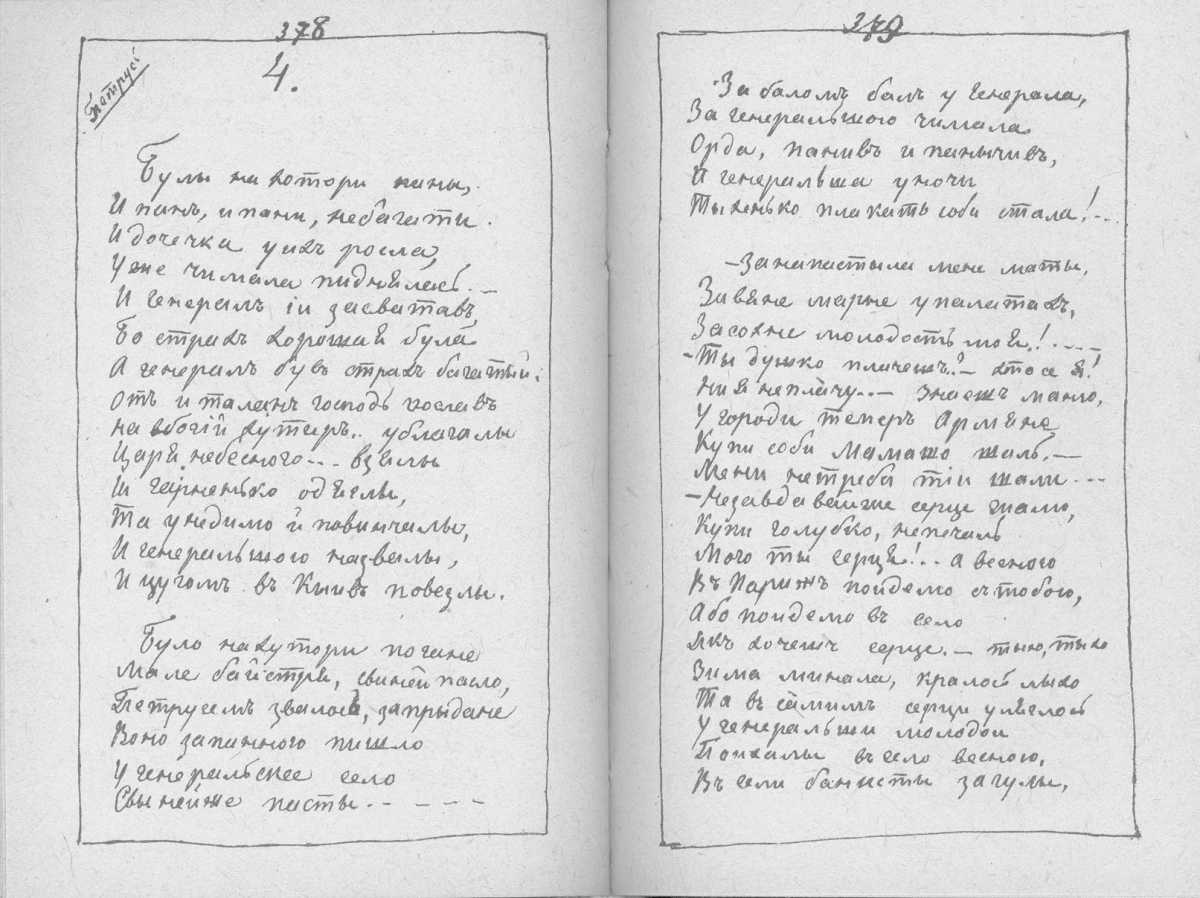 378
Петрусі
4.
Булы на хотори паны,
И панъ, и пани, небагати.
И дочечка у ихъ росла,
Уже чимала пиднялась. —
И генералъ іи засватавъ,
Бо страхъ хорошая була
А генералъ бувъ страхъ багатый.
Отъ и таланъ господь пославъ
На вбогій хутиръ.. ублагалы
Царя небесного... взялы
Ии гарненько одяглы,
Та у недилю й повинчалы,
И генеральшою назвалы,
И цугомъ въ Кыивъ повезлы.
Було на хутори погане
Мале байстря, свиней пасло,
Петрусемъ звалось, запрыдане
Воно за панною пишло
У генеральскее село
Свыней же пасты.. - - - -
379
За баломъ балъ у генерала,
За генеральшою чимала
Орда, панивъ и панычивъ,
И генеральша у ночи
Тыхенько плакать соби стала!...
— Занапастыла мене маты,
Завяне марне у палатахъ,
Засохне молодость моя!....
— Ты дужко плачешъ? — хто се я!
Ни я неплачу... — знаешъ маню,
У городи теперъ Армяне
Купи соби Мамашо шаль. —
Мени нетреба тіи шали...
— Незавдавайже серце жалю,
Купи голубко, непечаль
Мого ты серця!.. а весною
Въ Парижъ поидемо съ тобою,
Або поидемо въ село
Якъ хочешъ серце. — тыхо, тыхо
Зима минала, кралось лыхо
Та въ самимъ серци уляглось
У генеральши молодои
Поихалы въ село весною,
Въ сели банкеты загулы,